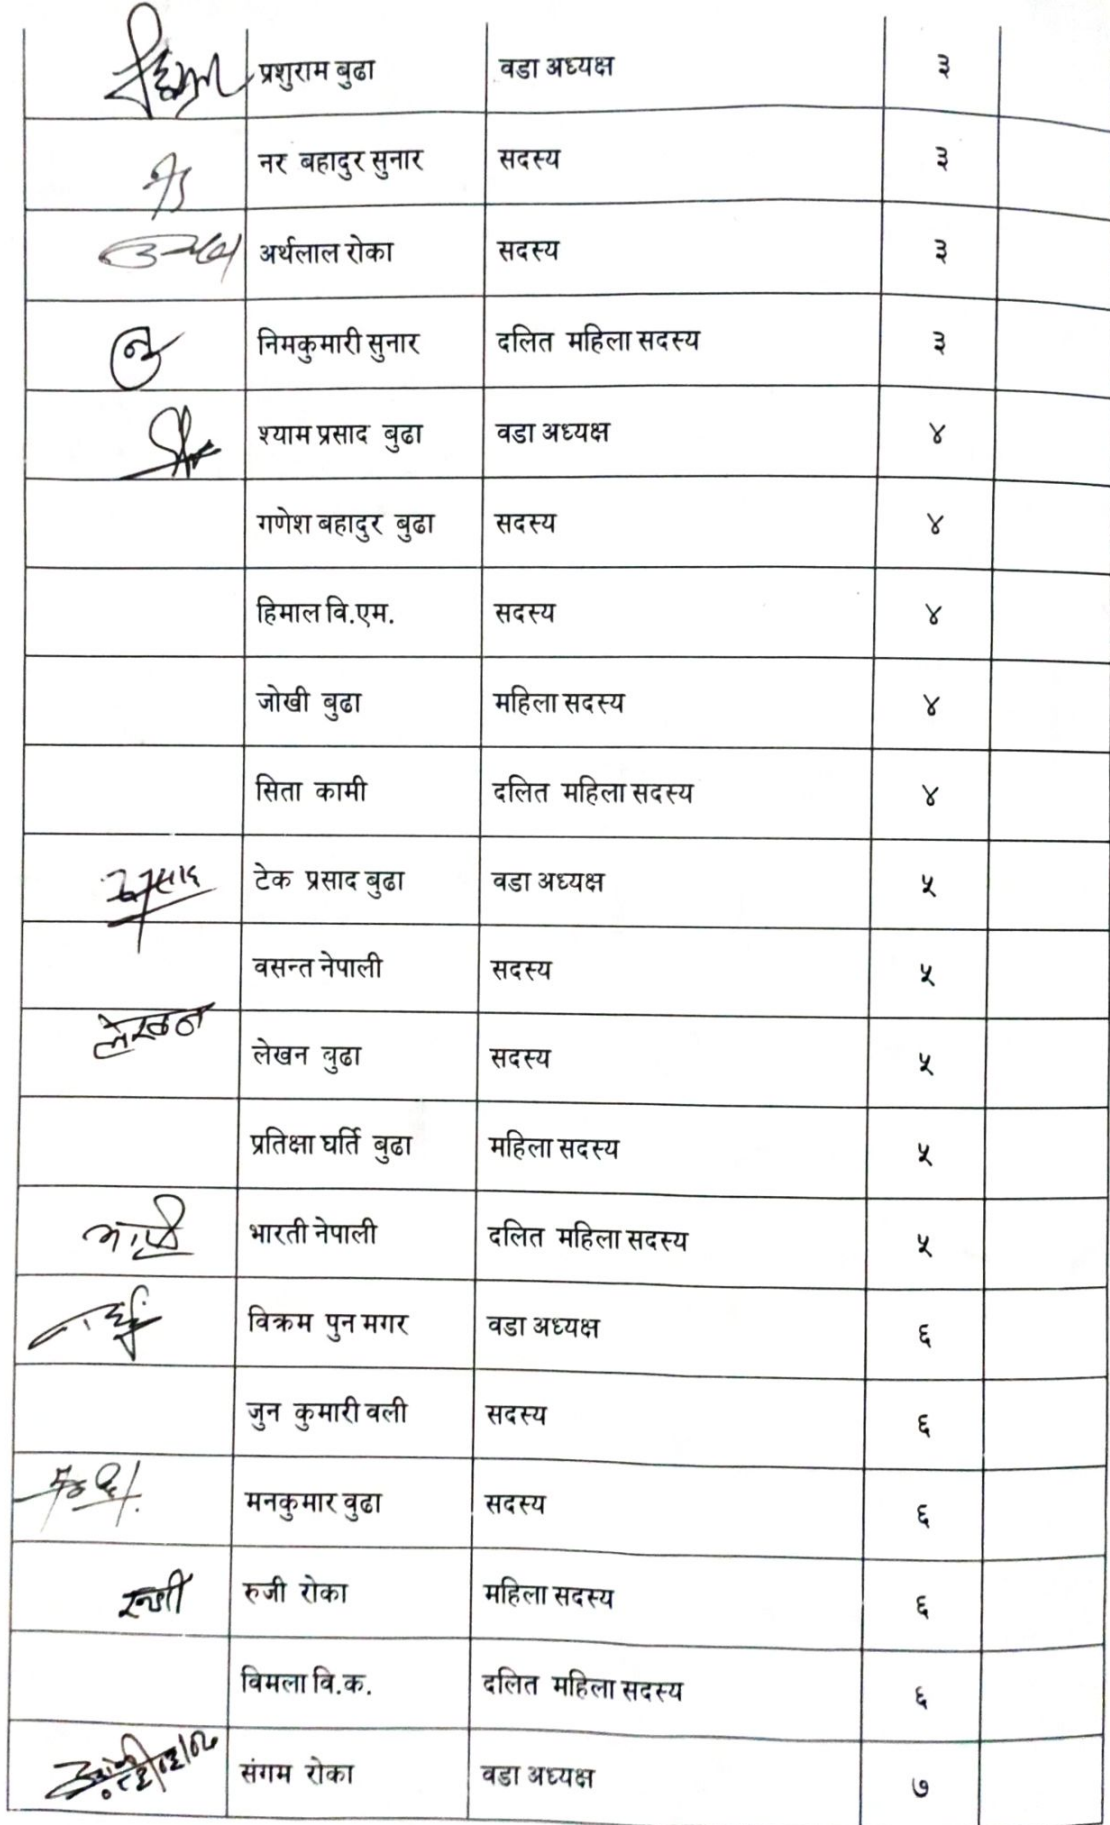 प्रशुराम बुढा वडा अध्यक्ष ३
नर बहादुर सुनार सदस्य ३
अर्थलाल रोका सदस्य ३
निमकुमारी सुनार दलित महिला सदस्य ३
श्याम प्रसाद बुढा वडा अध्यक्ष ४
गणेश बहादुर बुढा सदस्य ४
हिमाल वि.एम. सदस्य ४
जोखी बुढा महिला सदस्य ४
सिता कामी दलित महिला सदस्य ४
टेक प्रसाद बुढा वडा अध्यक्ष ५
वसन्त नेपाली सदस्य ५
लेखन लेखन बुढा सदस्य ५
प्रतिक्षा घर्ति बुढा महिला सदस्य ५
भारती नेपाली दलित महिला सदस्य ५
विक्रम पुन मगर वडा अध्यक्ष ६
जुन कुमारी वली सदस्य ६
मनकुमार वुढा सदस्य ६
रुजी रोका महिला सदस्य ६
विमला वि.क. दलित महिला सदस्य ६
संगम रोका वडा अध्यक्ष ७